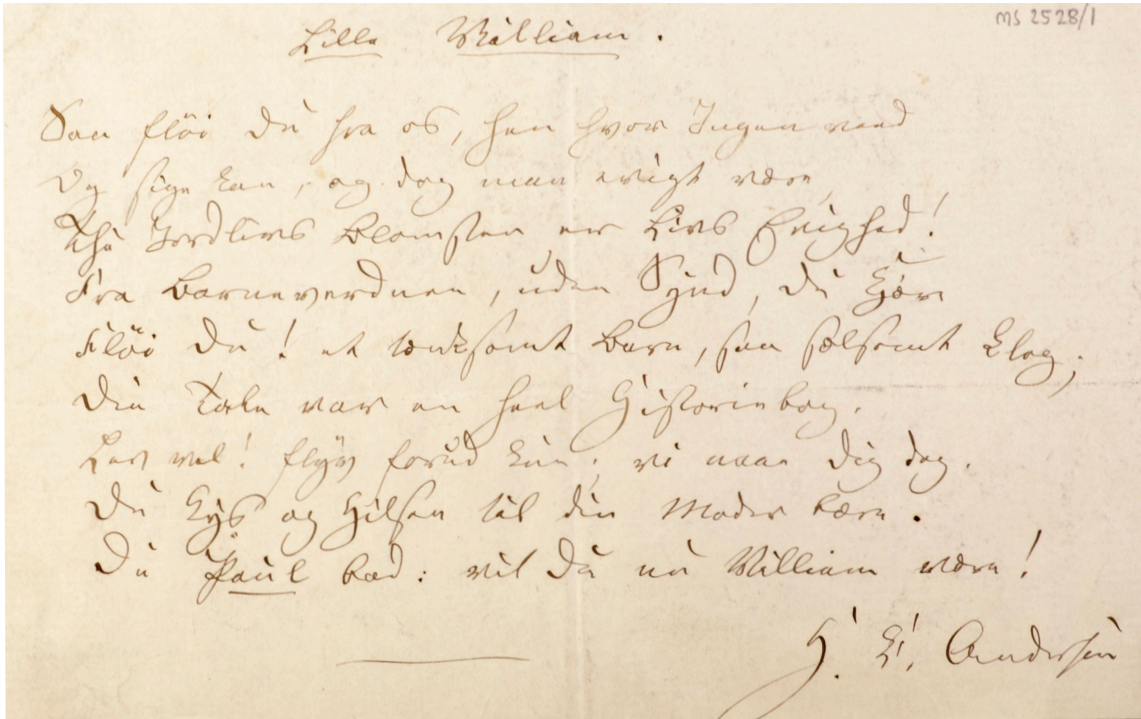 MS 2528/1
Lille William.
Saa fløi Du fra os, hen hvor Ingen veed
Og sige kan, og dog man evigt være,
Thi Jordlivs Blomsten er Livs Evighed!
Fra Barneverdnen, uden Synd, Du Kjære
Fløi Du! et tænksomt Barn, saa sælsomt klog,
Din Tale var en heel Historiebog.
Lev vel! flyv forud kun, vi naae Dig dog.
Du Kys og Hilsen til din Moder bære.
Du Paul bad: vil Du nu William være!
H. C. Andersen